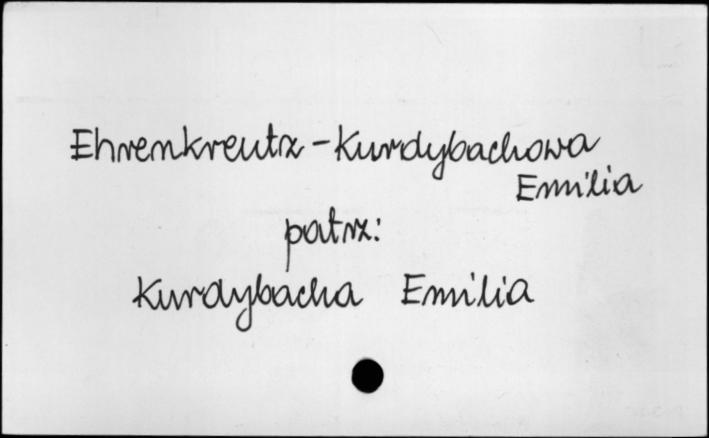 Ehrenkreutz-Kurdybachowa
Emilia
patrz:
Kurdybacha Emilia